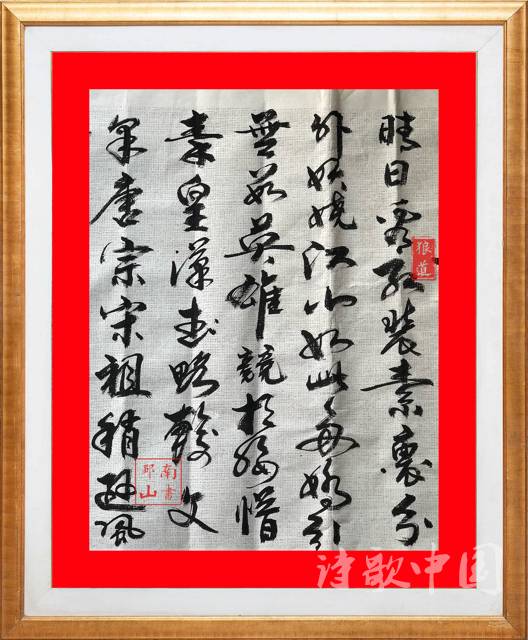 晴日看紅裝素裹分
外妖嬈江山如此多嬌引
無數英雄競折腰惜
秦皇漢武略輸文
采唐宗宋祖稍遜風
狼道
南書
山
诗歌中国